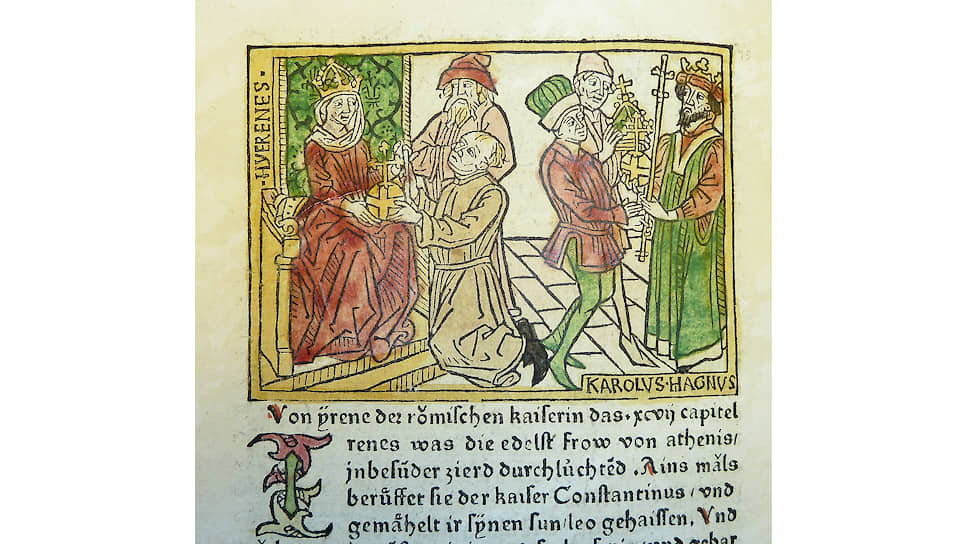 HYERENES
KAROLVS·MAGNVS
Von ÿrene der rŏmischen kaiſerin das·xcvij capitel
Irenes was die edelſt frow von athenis/
jnbeſūder zierd durchlŭchtēd. Ains mǎls
berŭffet ſie der kaiſer Conſtantinus/vnd
gemǎhelt ir ſÿnen ſun/leo gehaiſſen. Vnd